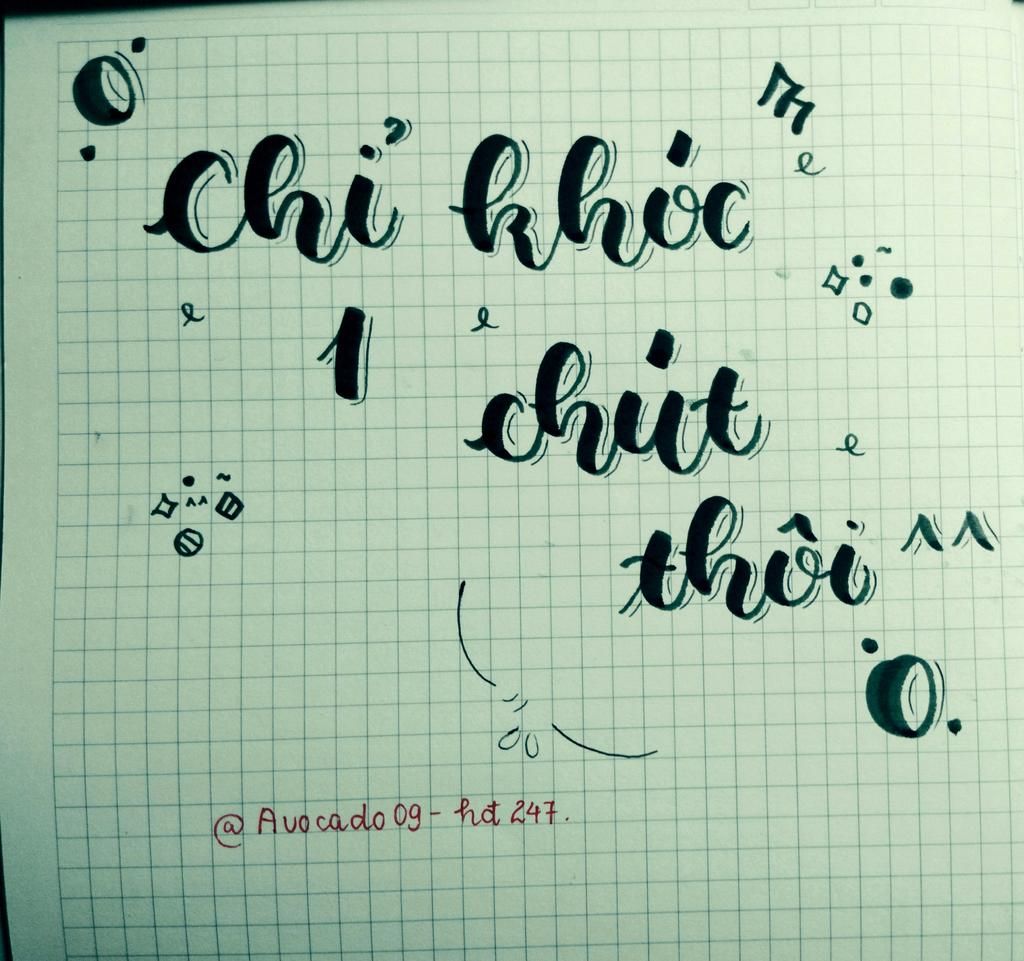 Chỉ khóc
1 chút
thôi ^^
@ Avocado 09 - hđ 247.